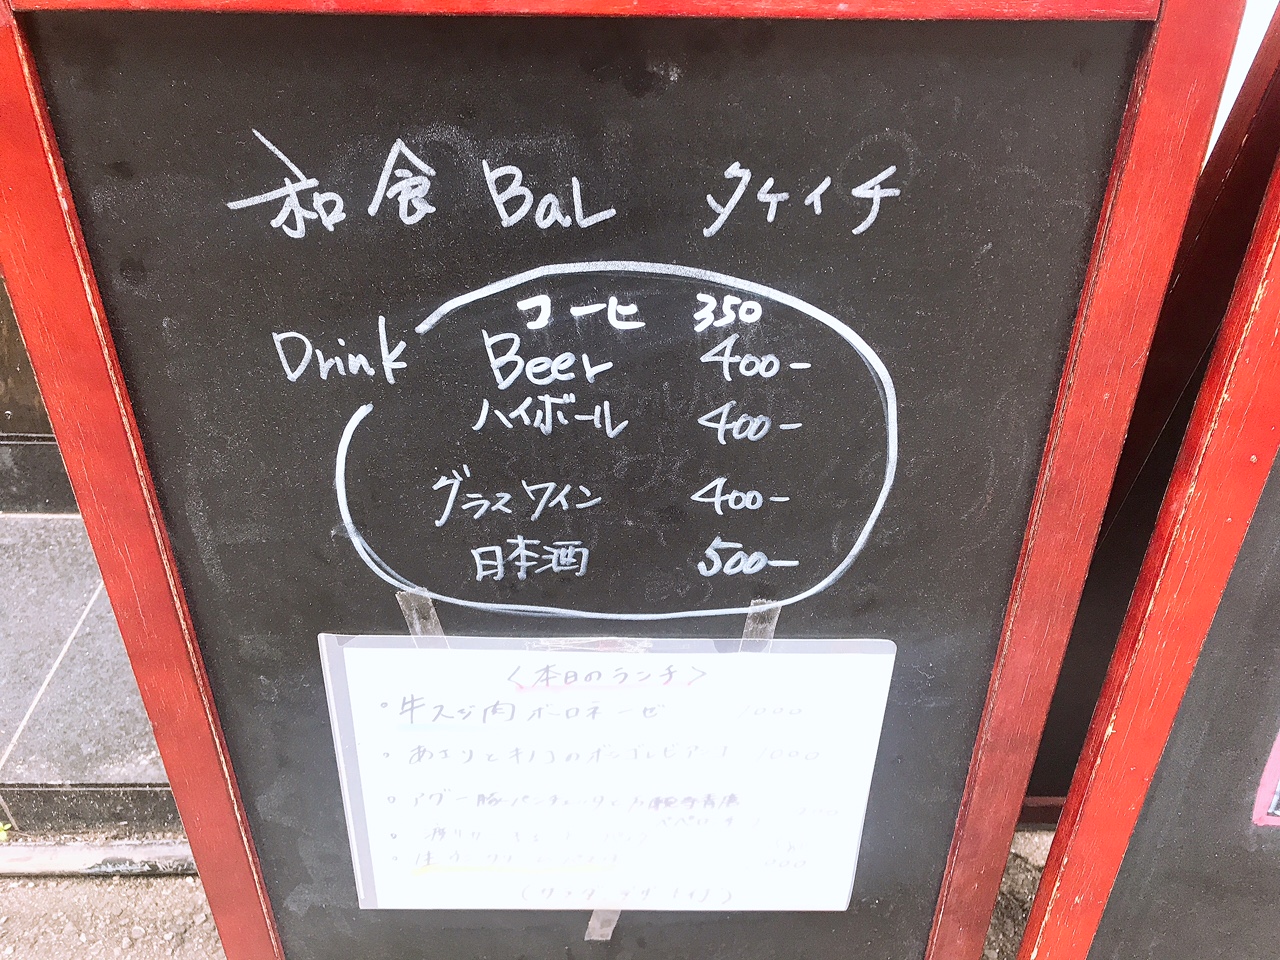 和食 BaL タケイチ
Drink
コーヒ 350
Beer 400-
ハイボール 400-
グラスワイン 400-
日本酒 500-
〈本日のランチ〉
・牛スジ肉ボロネーゼ 1000
・あさりとキノコのボンゴレビアンコ 1000
・アグー豚パンチェッタと
ペペロンチ